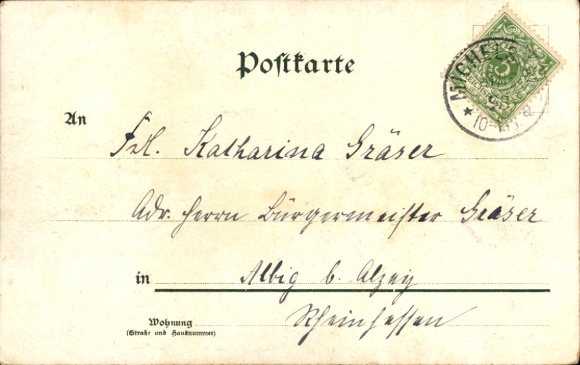 Postkarte
An
Frl. Katharina Gräser
Adr. Herrn Bürgermeister Gräser
in Albig b. Alzey
Rheinhessen
Wohnung
(Straße und Hausnummer)
5